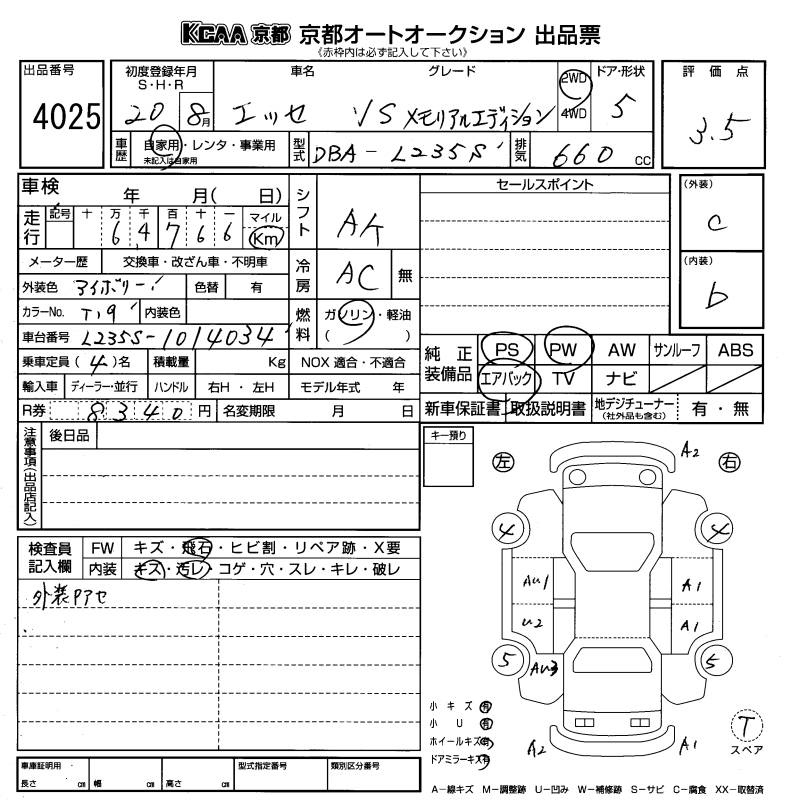 KCAA 京都 京都オートオークション 出品票
《赤枠内は必ず記入して下さい》
出品番号 4025
初度登録年月 S・H・R 20 8月
車名 エッセ
グレード VS メモリアルエディション
2WD 4WD
ドア・形状 5
評価点 3.5
車歴 自家用・レンタ・事業用
未記入は自家用
型式 DBA-L235S
排気 660 CC
車検 年 月( 日)
走行 記号 十 万 千 百 十 一 マイル
6 4 7 6 6 Km
シフト AK
冷房 AC 無
メーター歴 交換車・改ざん車・不明車
外装色 アイボリー 色替 有
カラーNo. T19 内装色
燃料 ガソリン・軽油 ( )
車台番号 L235S-1014034
乗車定員 (4)名 積載量 Kg NOX 適合・不適合
輸入車 ディーラー・並行 ハンドル 右H・左H モデル年式 年
R券 8340円 名変期限 月 日
セールスポイント
(外装) C
(内装) b
純正装備品 PS PW AW サンルーフ ABS
エアバック TV ナビ
新車保証書 取扱説明書 地デジチューナー (社外品も含む) 有・無
注意事項(出品店記入)
後日品
キー預り
検査員記入欄 FW キズ・飛石・ヒビ割・リペア跡・X要
内装 キズ・汚レ・コゲ・穴・スレ・キレ・破レ
外装Pアセ
左 右
A2
4 4
AU1 A1
U2 A1
5 AU3 5
A2 A1
小キズ 有
小U 有
ホイールキズ 有
ドアミラーキズ 有
T
スペア
車庫証明用 長さ cm 幅 cm 高さ cm
型式指定番号 類別区分番号
A-線キズ M-調整跡 U-凹み W-補修跡 S-サビ C-腐食 XX-取替済